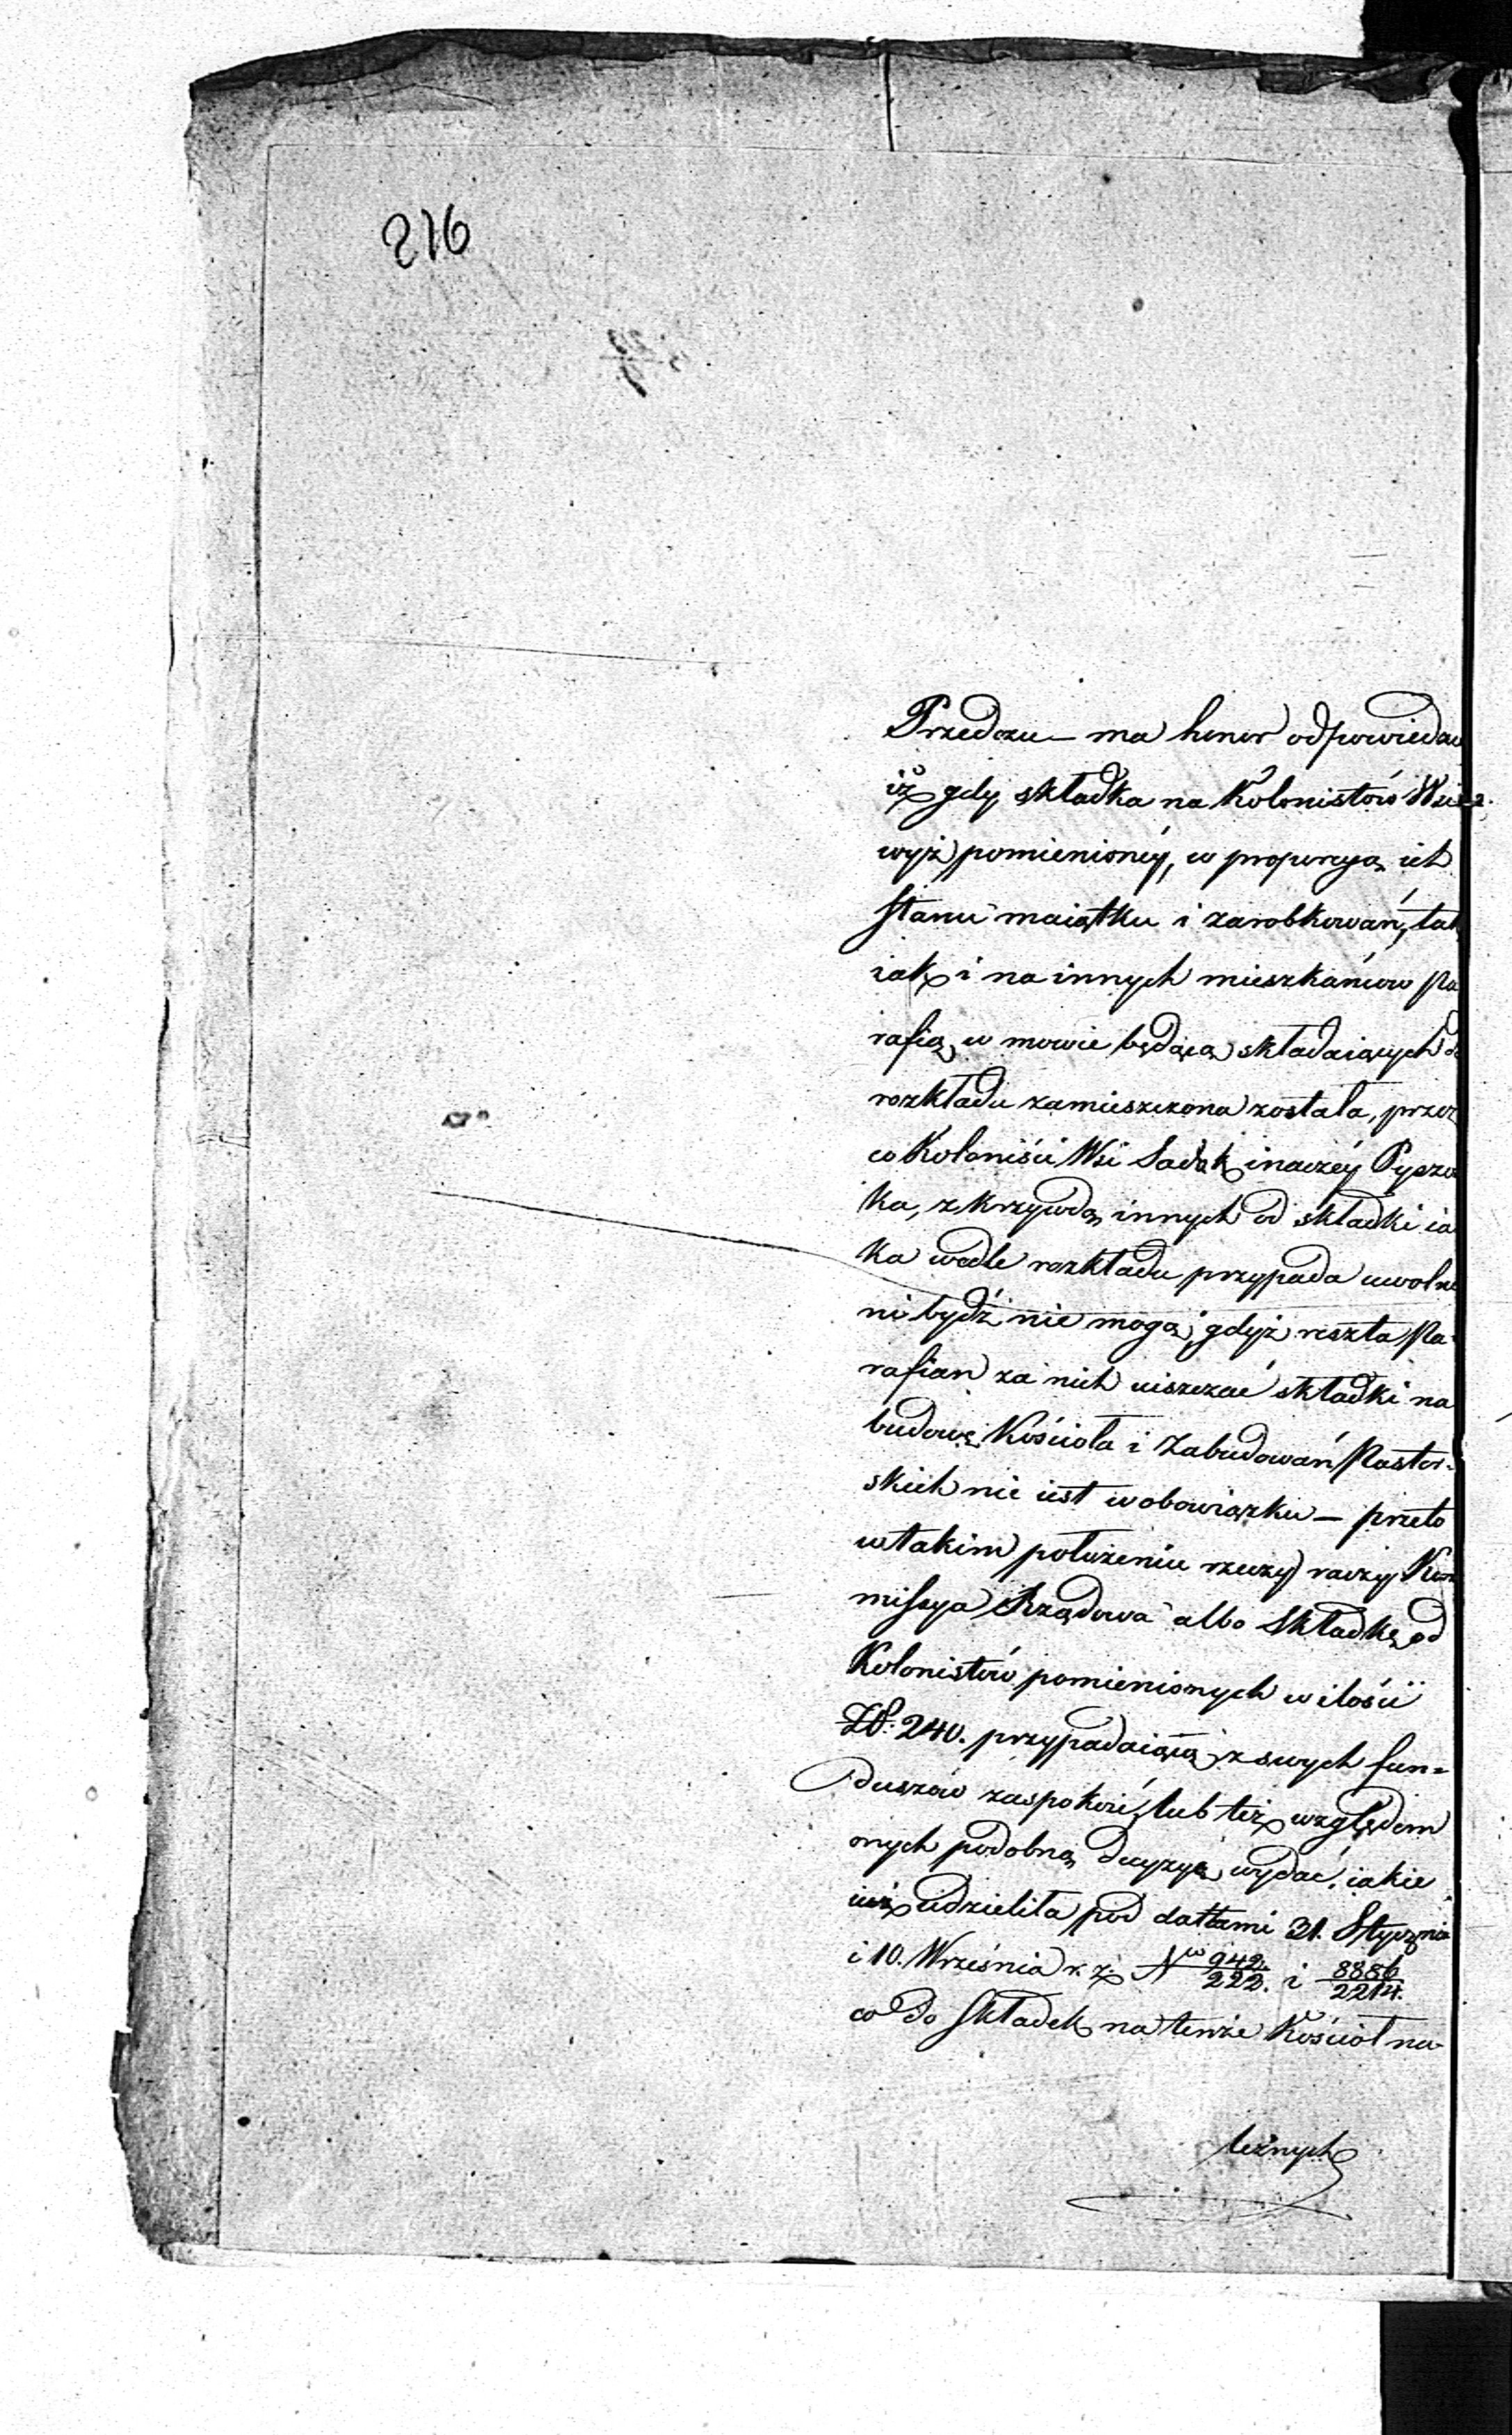 216
Przedczu — ma honor odpowiedać
iż gdy składka na Kolonistów Wsi
wyż pomienionéy, w proporcyą ich
stanu maiątku i zarobkowań, tak
iak i na innych mieszkańcow Pa
rafią w mowie będącą składaiących do
rozkładu zamieszczona została, przez
co Koloniści Wsi Sadek inaczéy Pyszo
ka, z krzywdą innych od składki ia
ka wedle rozkładu przypada uwolne
ni bydź nie mogą, gdyż reszta Pa-
rafian za nich uiszczać składki na
budowę Kościoła i Zabudowań Pastor-
skich nie iest w obowiązku — przeto
w takim położeniu rzeczy raczy Kom
missya Rządowa albo Składkę od
Kolonistów pomienionych w ilości
Zł: 240. przypadaiącą z swych fun=
duszów zaspokoić, lub też względem
onych podobną decyzyą wydać, iakie
iuż udzieliła pod dattami 31. Stycznia
i 10. Września r. z. Nº 942/222. i 8886/2214.
co do Składek na tenże Kościół na-
leżnych